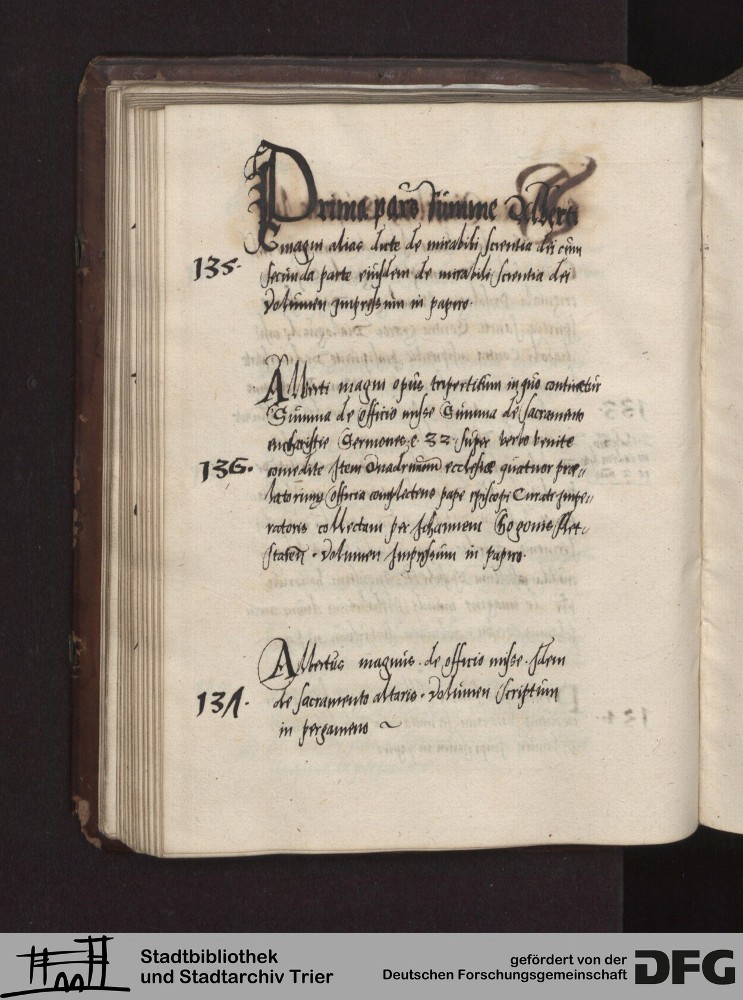 Prima pars summe Alberti
magni alias dicte de mirabili scientia dei cum
135.
secunda parte eiusdem de mirabili scientia dei
volumen impressum in papiro.
Alberti magni opus tripertitum in quo continetur
Summa de officio misse Summa de sacramento
eucharistie Sermones 32 super verbo venite
136.
comedite Item Quadruuium ecclesie quatuor pre„
latorum officia complectens pape episcopi Curati impe„
ratoris collectam per Johannem Hugonis Slet„
staten . volumen impressum in papiro.
Albertus magnus . de officio misse . Idem
137.
de sacramento altaris . volumen scriptum
in pergameno ~
Stadtbibliothek
und Stadtarchiv Trier
gefördert von der
Deutschen Forschungsgemeinschaft
DFG